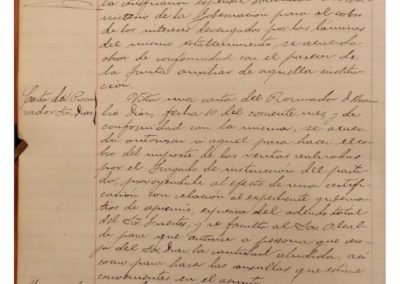 la
nisterio de la Gobernación para el cobro
de los intereses devengados por las láminas
del mismo establecimiento se acuerda
obrar de conformidad con el parecer de
la Junta auxiliar de aquella institu
ción.
Carta del Procu
rador Sr. Dian
Vista una carta del Procurador D.
lio Dian, fecha 10 del corriente mes, y de
conformidad con la misma, se acuer
da autorizar a aquel para hacer el co
bro del importe de las ventas realizadas
por el Juzgado de instrucción del parti
do, proveyéndole al efecto de una certifi
cación con relación al expediente guberna
tivo de apremio, expresiva del adeudo total
del Sr. y se faculta al Sor. Alcal
de para que autorice a persona que exi
ja del Sr. Dian la cantidad aludida, así
como para hacer las consultas que estime
convenientes en el asunto.